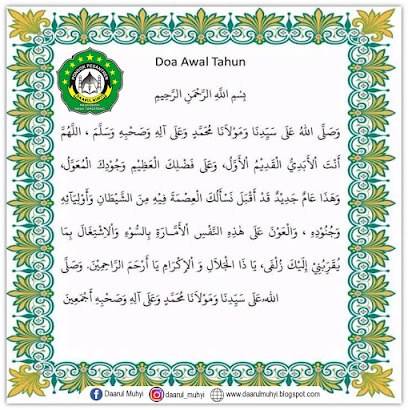 Doa Awal Tahun
بِسْمِ اللَّهِ الرَّحْمَنِ الرَّحِيمِ
وَصَلَّى اللهُ عَلَى سَيِّدِنَا وَمَوْلَانَا مُحَمَّدٍ وَعَلَى آلِهِ وَصَحْبِهِ وَسَلَّمَ ، اللَّهُمَّ
أَنْتَ اْلأَبَدِيُّ الْقَدِيمُ اْلأَوَّلُ، وَعَلَى فَضْلِكَ الْعَظِيْمِ وَجُوْدِكَ الْمُعَوَّلُ،
وَهَذَا عَامٌ جَدِيْدٌ قَدْ أَقْبَلَ نَسْأَلُكَ الْعِصْمَةَ فِيْهِ مِنَ الشَّيْطَانِ وَأَوْلِيَآئِهِ
وَجُنُوْدِهِ ، وَالْعَوْنَ عَلَى هَذِهِ النَّفْسِ اْلأَمَّارَةِ بِالسُّوْءِ وَاْلاِشْتِغَالِ بِمَا
يُقَرِّبُنِيْ إِلَيْكَ زُلْفَى، يَا ذَا الْجَلاَلِ وَ اْلإِكْرَامِ يَا أَرْحَمَ الرَّاحِمِيْنَ. وَصَلَّى
اللهُ عَلَى سَيِّدِنَا وَمَوْلَانَا مُحَمَّدٍ وَعَلَى آلِهِ وَصَحْبِهِ أَجْمَعِيْنَ
Daarul Muhyi daarul_muhyi www.daarulmuhyi.blogspot.com